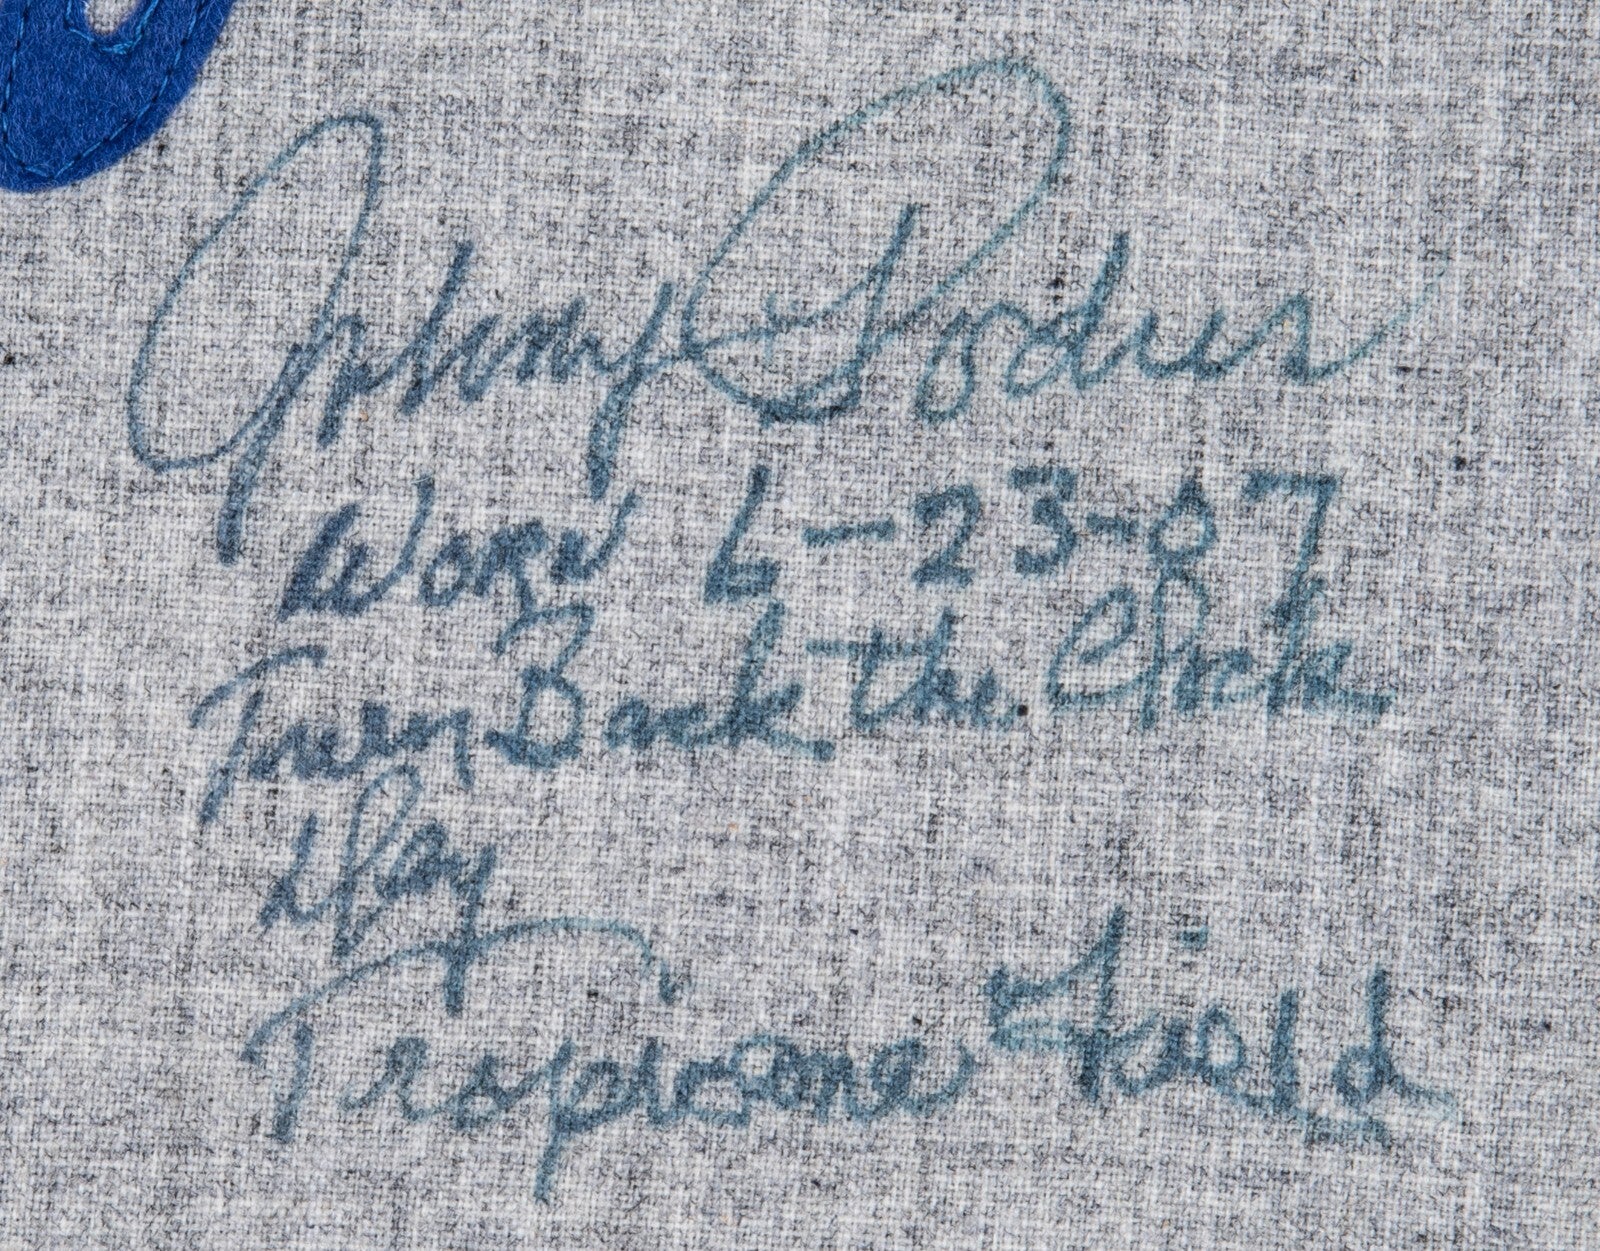 Johnny Podres
Worn 6-23-07
Turn Back the Clock
Day
Tropicana Field